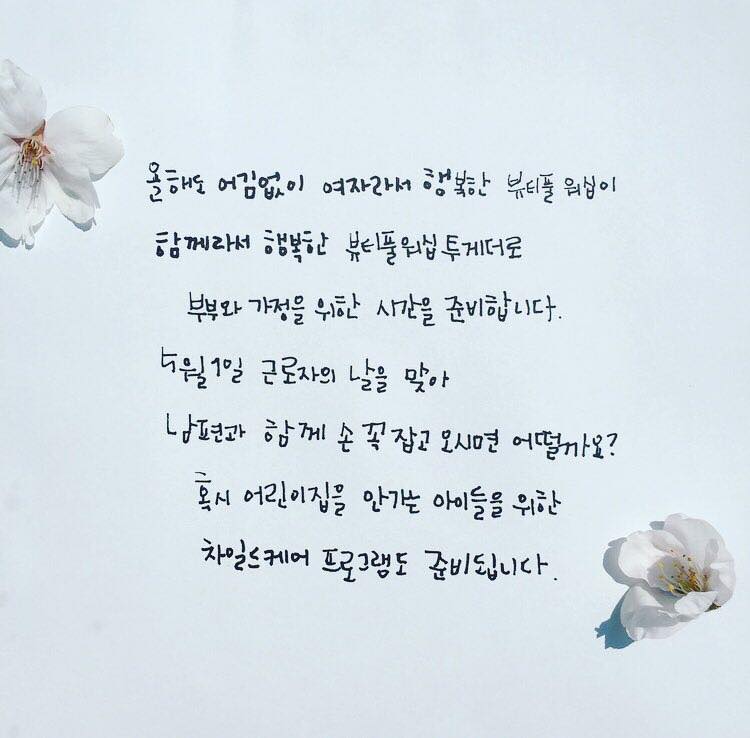 올해도 어김없이 여자라서 행복한 뷰티풀 워십이
함께라서 행복한 뷰티풀워십투게더로
부부와 가정을 위한 시간을 준비합니다.
5월1일 근로자의 날을 맞아
남편과 함께 손 꼭 잡고 오시면 어떨까요?
혹시 어린이집을 안가는 아이들을 위한
차일드케어 프로그램도 준비됩니다.